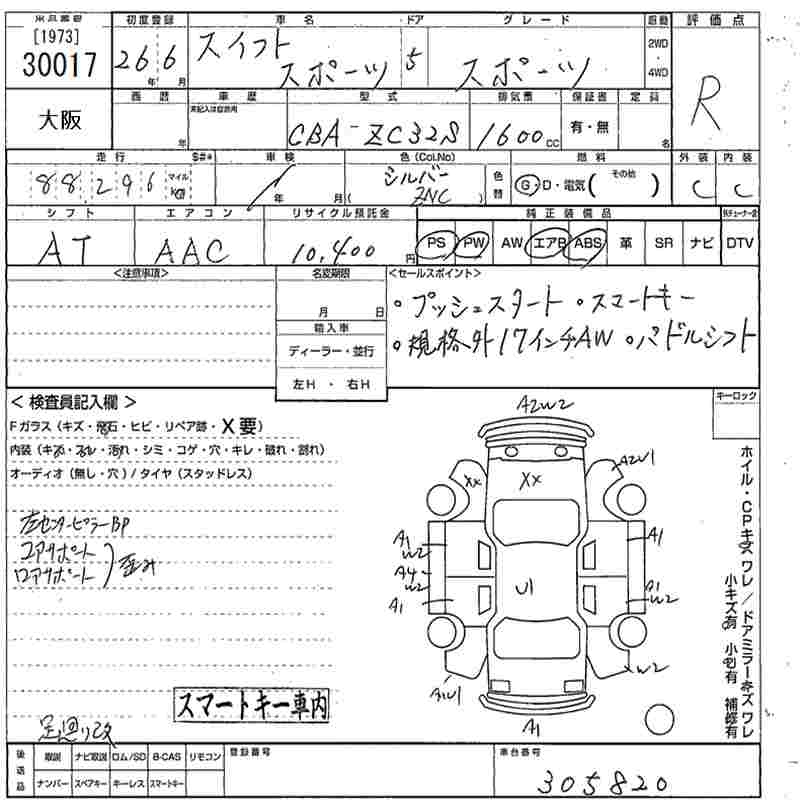 [1973]
30017
大阪
初度登録
26年 6月
車名
スイフト
スポーツ
ドア
5
グレード
スポーツ
駆動
2WD
4WD
評価点
R
西暦
年
車歴
未記入は自家用
型式
CBA-ZC32S
排気量
1600cc
保証書
有・無
定員
名
走行
$#*
88,296
マイル
km
車検
年 月
色(Col.No)
シルバー
(ZNC)
色替
燃料
G・D・電気(その他)
外装
C
内装
C
シフト
AT
エアコン
AAC
リサイクル預託金
10,400円
純正装備品
PS PW AW エアB ABS 革 SR ナビ DTV
<注意事項>
名変期限
月 日
輸入車
ディーラー・並行
左H・右H
<セールスポイント>
・プッシュスタート ・スマートキー
・規格外17インチAW ・パドルシフト
<検査員記入欄>
キーロック
Fガラス(キズ・飛石・ヒビ・リペア跡・X要)
内装(キズ・スレ・汚れ・シミ・コゲ・穴・キレ・破れ・割れ)
オーディオ(無し・穴)/タイヤ(スタッドレス)
左センターピラーBP
コアサポート
ロアサポート
歪み
スマートキー車内
足廻り改
A2W2
A2U1
XX
XX
A1
W2
A4
W2
A1
U1
A1
A1
W2
XW2
A1
ホイル・CPキズ ワレ/ドアミラーキズ ワレ
小キズ有 小凹有 補修有
後送品
取説 ナビ取説 ロム/SD B-CAS リモコン
ナンバー スペアキー キーレス スマートキー
登録番号
車台番号
305820